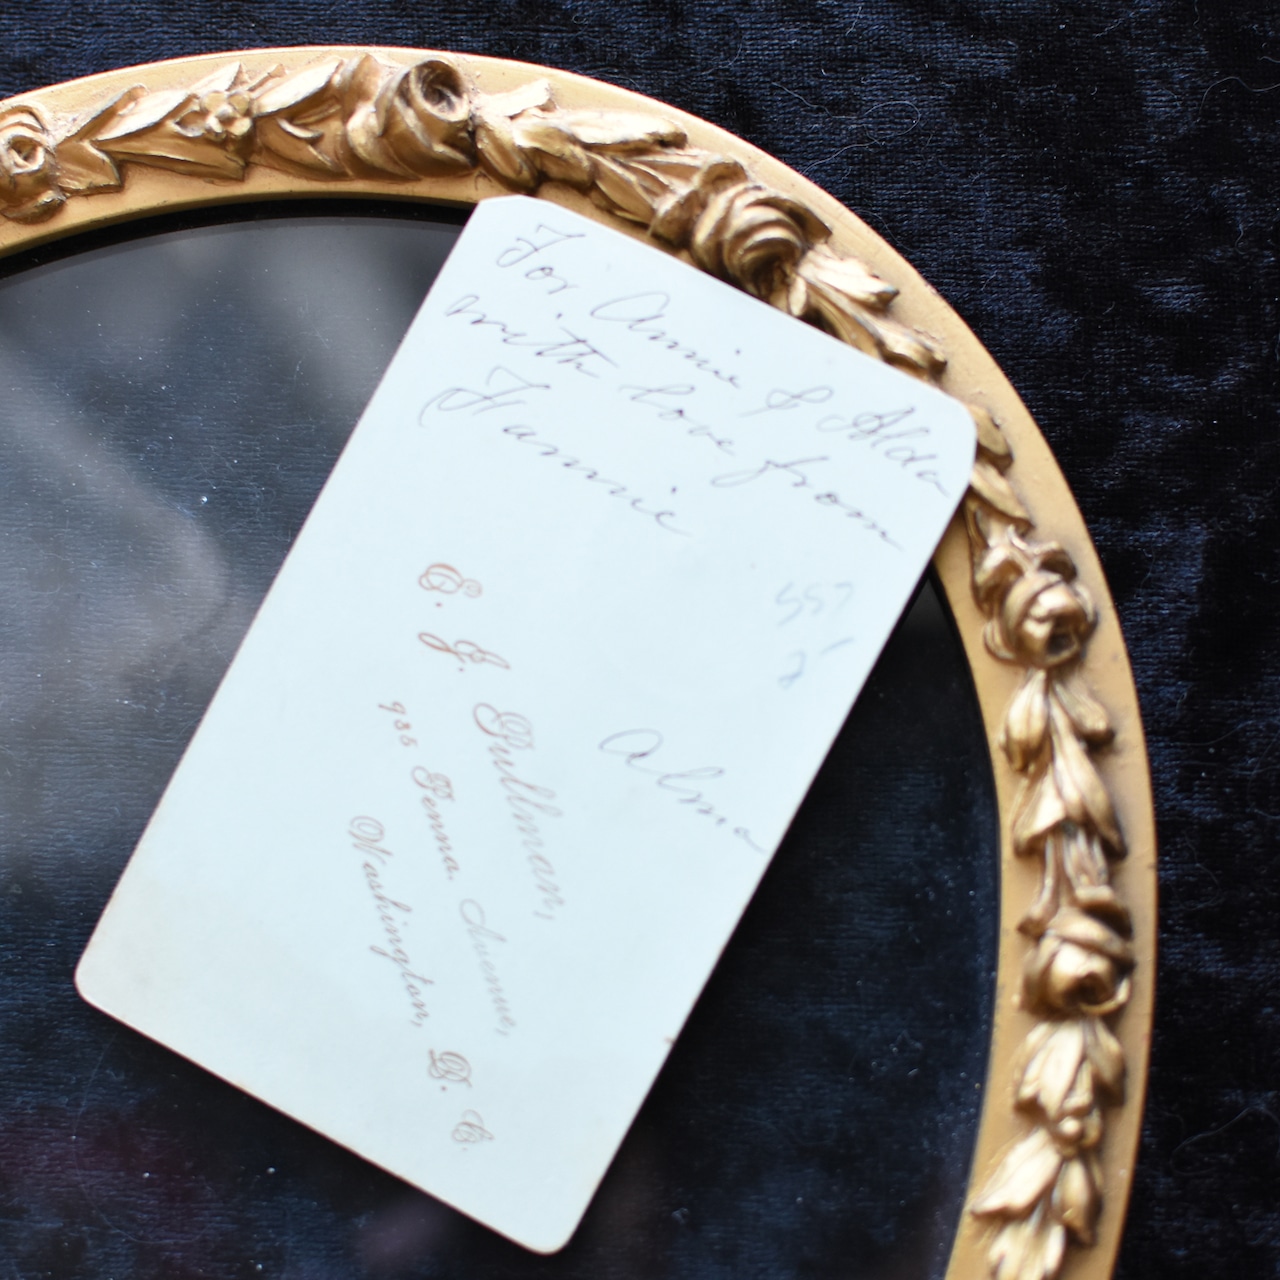 For Annie & Alda
with love from
Fannie
557
2
Alma
E. J. Pullman,
935 Penna. Avenue,
Washington, D. C.